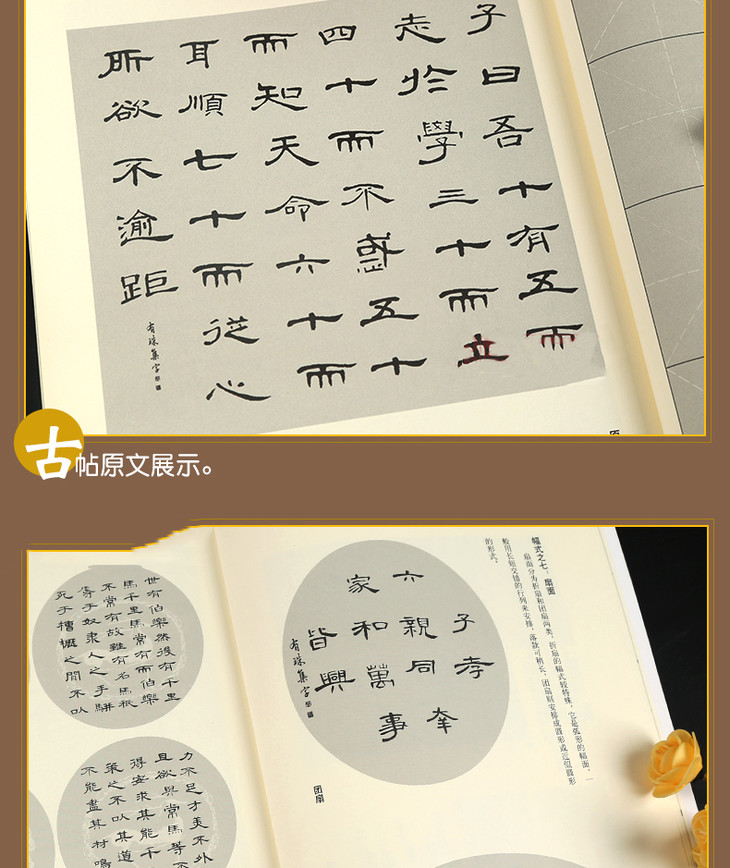 子曰吾十有五而
志於學三十而立
四十而不惑五十
而知天命六十而
耳順七十而從心
所欲不逾距
集字
古帖原文展示。
幅式之七：扇面
扇面分为折扇和团扇两类，折扇的幅式较特殊，它是弧形的幅面，一
般用长短交错的行列来安排，落款可稍长；团扇则安排成圆形或近似圆形
的形式。
子孝
六親同
家和萬事
皆興
集字
团扇
世有伯樂然後有千里
馬千里馬常有而伯樂
不常有故雖有名馬祇
辱于奴隸人之手駢
死于槽櫪之間不以
力不足才美不外
且欲與常馬等不
得安求其能千
策之不以其道
不能盡其材鳴